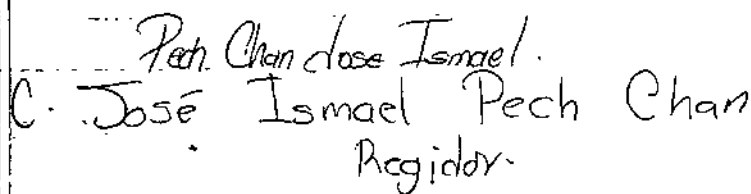 Pech Chan Jose Ismael.
C. José Ismael Pech Chan
Regidor.